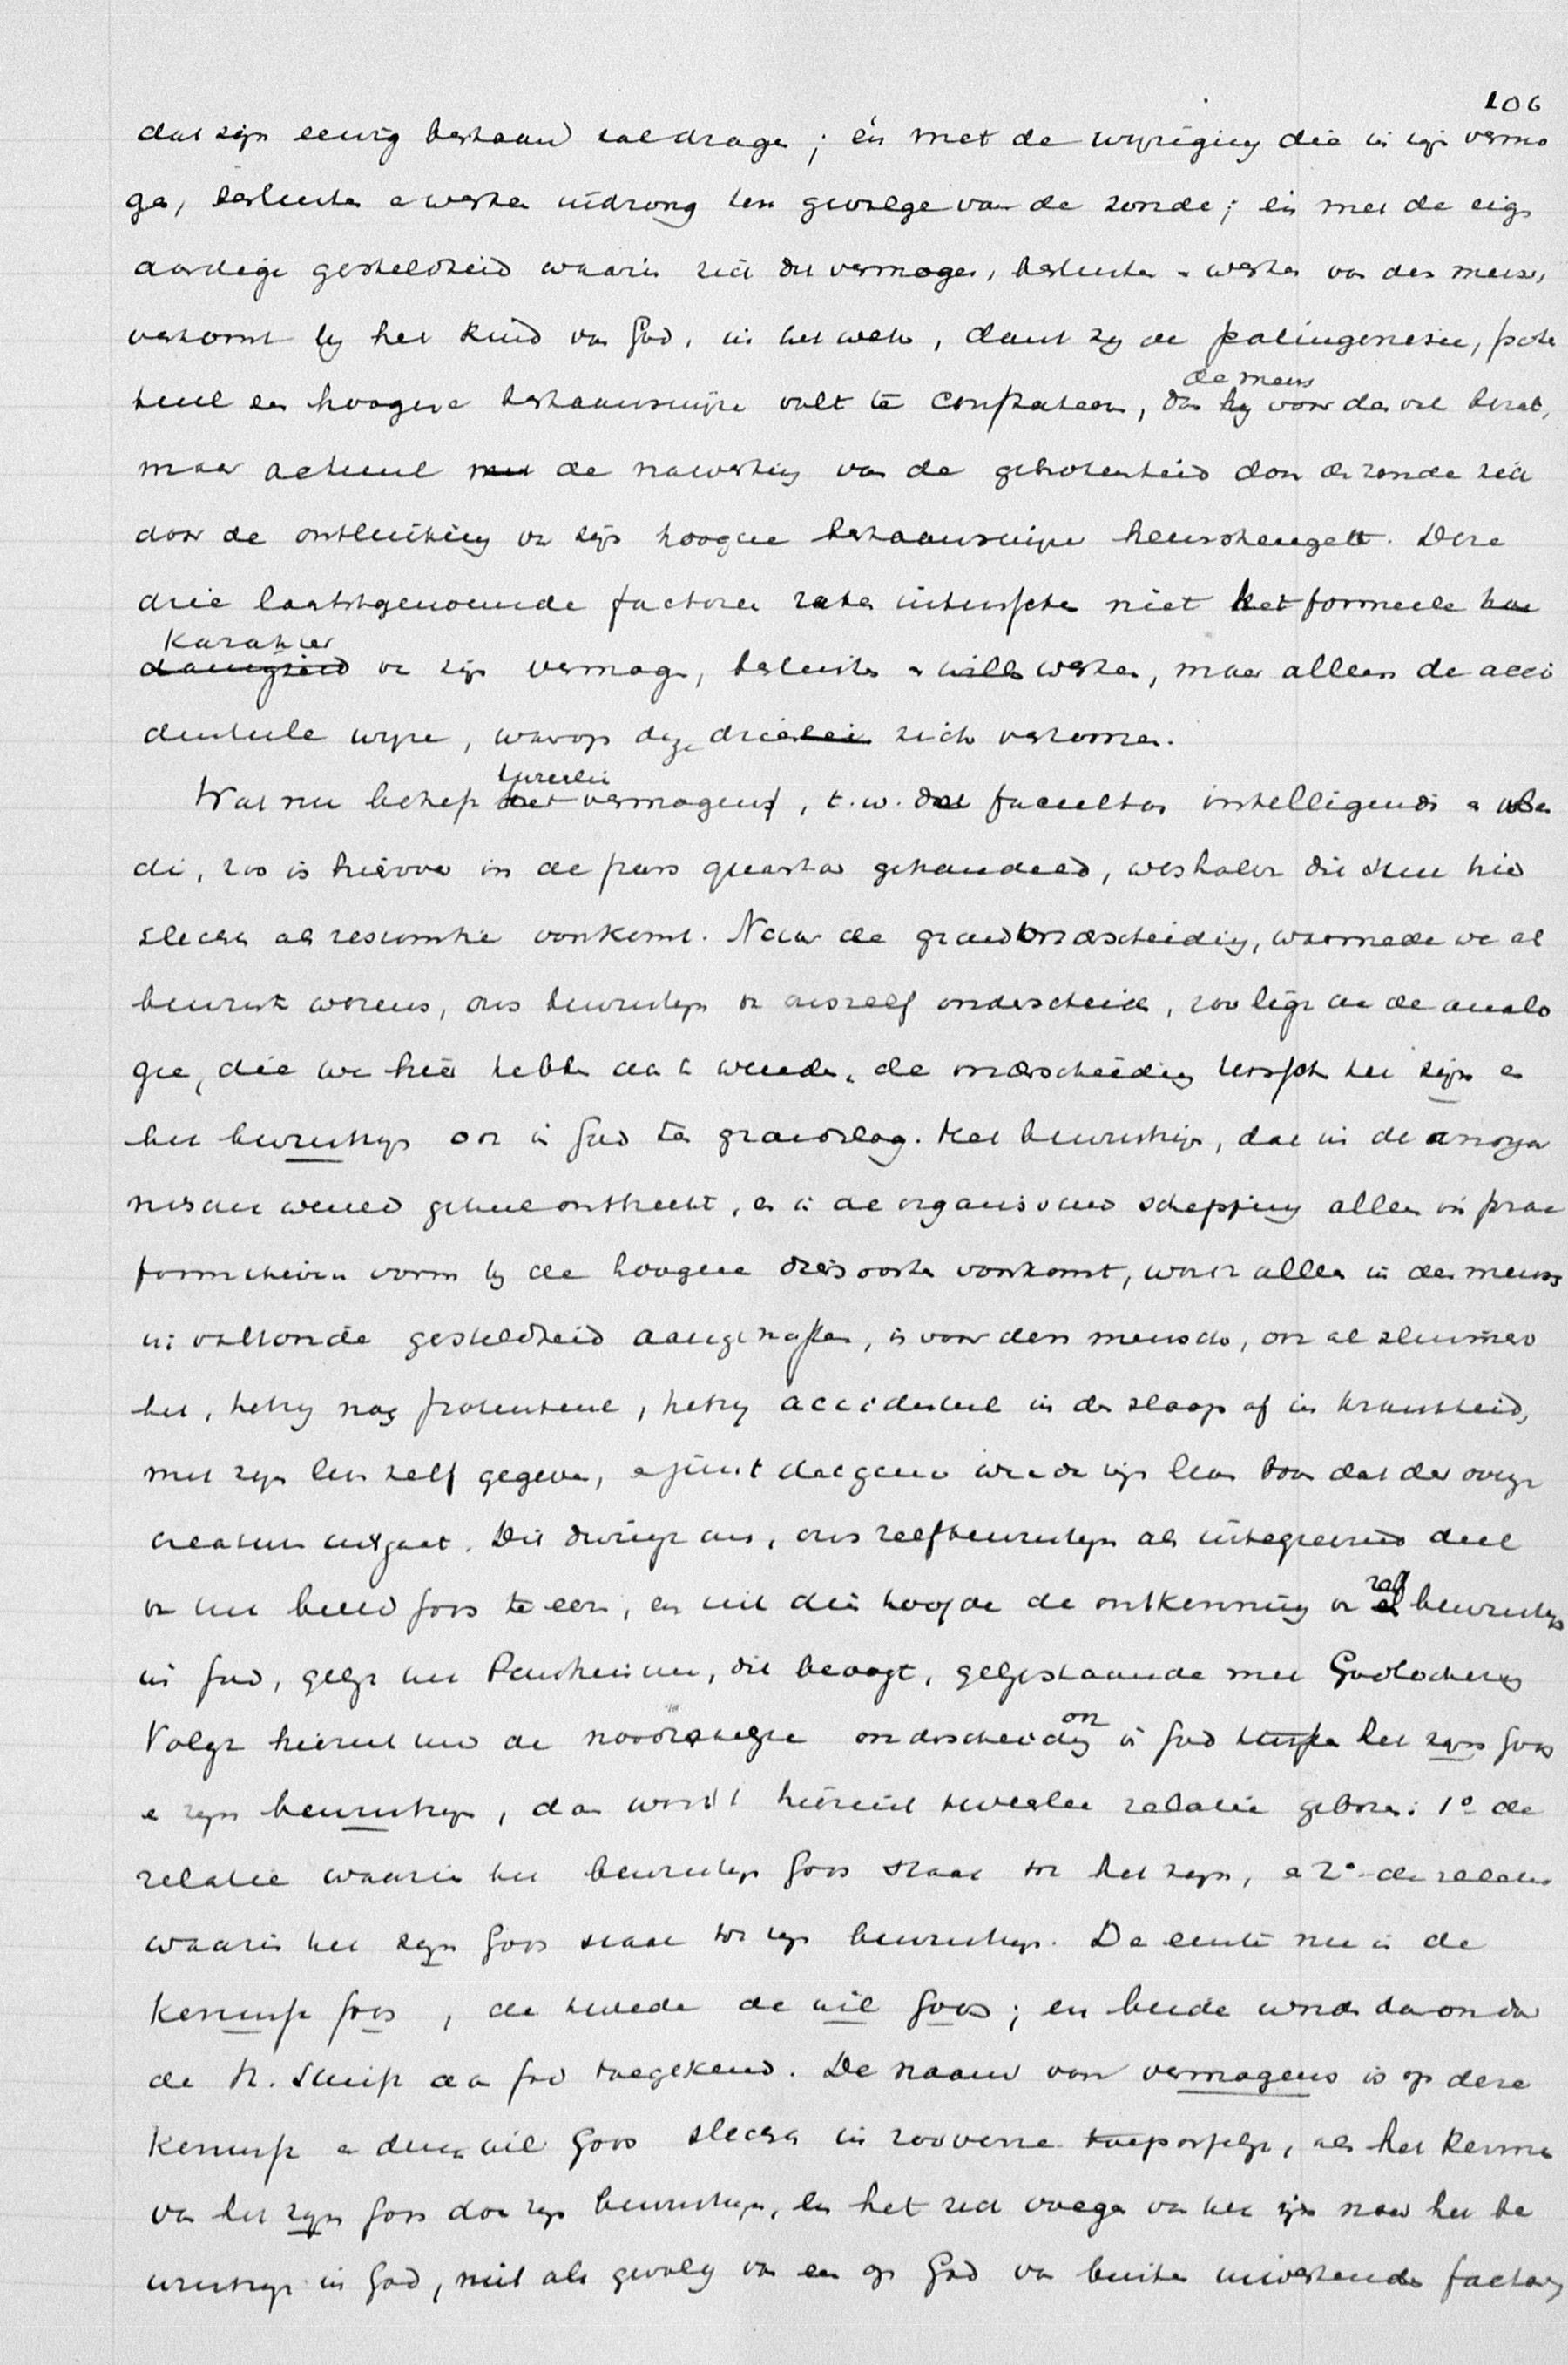 106
dat zijn eeuwig bestaan zal dragen; én met de wijziging die in zijn vermo
gen, besluiten en werken indrong ten gevolge van de zonde; én met de eigen
aardige gesteldheid waarin zich dit vermogen, besluiten en werken van den mensch,
vertoont bij het kind van God, in het welk, dank zij de palingenesie, poten
tieel een hoogere bestaanswijze valt te constateeren, dan de mensch voor den val bezat,
maar actueel de nawerking van de gebrokenheid door de zonde zich
door de ontluiking van zijn hoogere bestaanswijze heenstrengelt. Deze
drie laatstgenoemde factoren raken intusschen niet het formeele
karakter van zijn vermogen, besluiten en werken, maar alleen de acci
denteele wijze, waarop deze drie zich vertoonen.
Wat nu betreft vermogens, t.w. facultas intelligendi en volen
di, zoo is hierover in de pars quarta gehandeld, weshalve die hier
slechts als resumtie voorkomt. Naar de grondonderscheiding, waarmede we al
bewuste wezens, ons bewustzijn van onszelf onderscheiden, zoo ligt aan de analo
gie, die we hier hebben aan te wenden, de onderscheiding tusschen het zijn en
het bewustzijn ook in God ten grondslag. Het bewustzijn, dat in de anorga
nische wereld geheel ontbreekt, en in de organische schepping alleen in prae
formatieven vorm bij de hoogere diersoorten voorkomt, wordt alleen in den mensch
in voltooide gesteldheid aangetroffen, is voor den mensch, ook al sluimert
het, hetzij nog potentieel, hetzij accidenteel in den slaap of in krankheid,
met zijn leven zelf gegeven, en juist datgene waardoor zijn leven boven dat der overige
creaturen uitgaat. Dit dwingt ons, ons zelfbewustzijn als integreerend deel
van het beeld Gods te eeren, en uit dien hoofde de ontkenning van zelfbewustzijn
in God, gelijk het Pantheisme, dit beoogt, gelijkstaande met Godlochening
Volgt hieruit nu de noodzakelijke onderscheiding ook in God het zijn Gods
en zijn bewustzijn, dan wordt hieruit tweeërlei relatie geboren: 1° de
relatie waarin het bewustzijn Gods staat tot het zijn, en 2° de relatie
waarin het zijn Gods staat tot zijn bewustzijn. De eerste nu is de
kennisse Gods, de tweede de wil Gods; en beide worden dan ook door
de H. Schrift aan God toegekend. De naam van vermogens is op deze
kennisse en dezen wil Gods slechts in zooverre, als het kennen
van het zijn Gods door zijn bewustzijn, en het zich voegen van het zijn naar het be
wustzijn in God, niet als gevolg van een op God van buiten inwerkenden factor